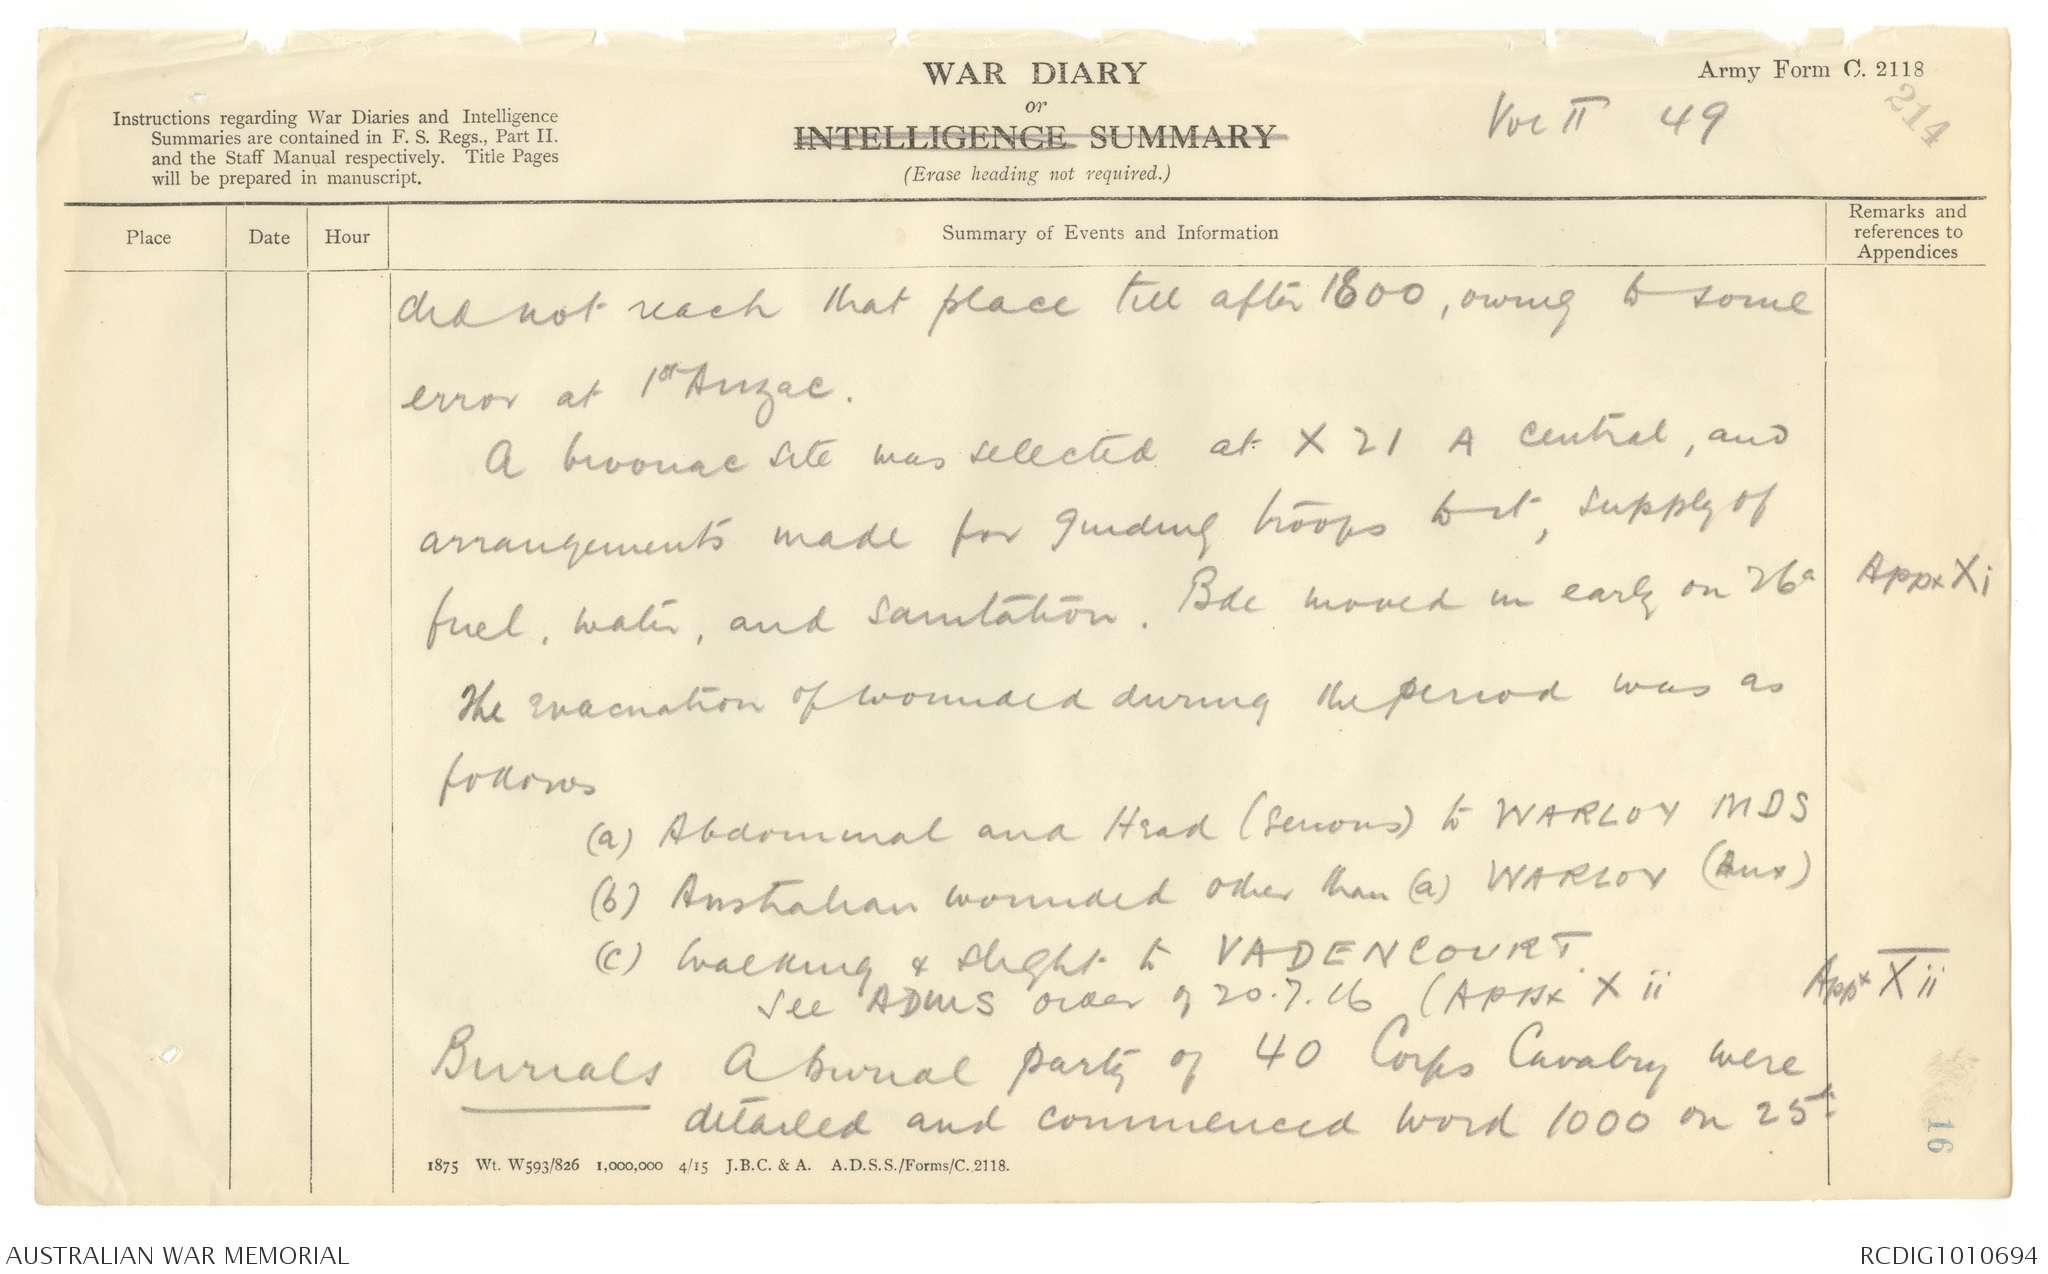 WAR DIARY
or
INTELLIGENCE SUMMARY
(Erase heading not required.)
Army Form C. 2118
Vol II 49
214
Instructions regarding War Diaries and Intelligence
Summaries are contained in F. S. Regs., Part II.
and the Staff Manual respectively. Title Pages
will be prepared in manuscript.
Place
Date
Hour
Summary of Events and Information
Remarks and
references to
Appendices
did not reach that place till after 1800, owing to some
error at 1st Anzac.
A bivouac site was selected at X 21 A central, and
arrangements made for guiding troops to it, supply of
fuel, water, and sanitation. Bde moved in early on 26th
Appx Xi
The evacuation of wounded during the period was as
follows
(a) Abdominal and Head (serious) to WARLOY MDS
(b) Australian wounded other than (a) WARLOY (Aux)
(c) Walking & slight to VADENCOURT.
See ADMS order of 20.7.16 (Appx X ii
Appx X ii
Burials A burial party of 40 Corps Cavalry were
detailed and commenced word 1000 on 25th
16
1875 Wt. W593/826 1,000,000 4/15 J.B.C. & A. A.D.S.S./Forms/C. 2118.
AUSTRALIAN WAR MEMORIAL
RCDIG1010694